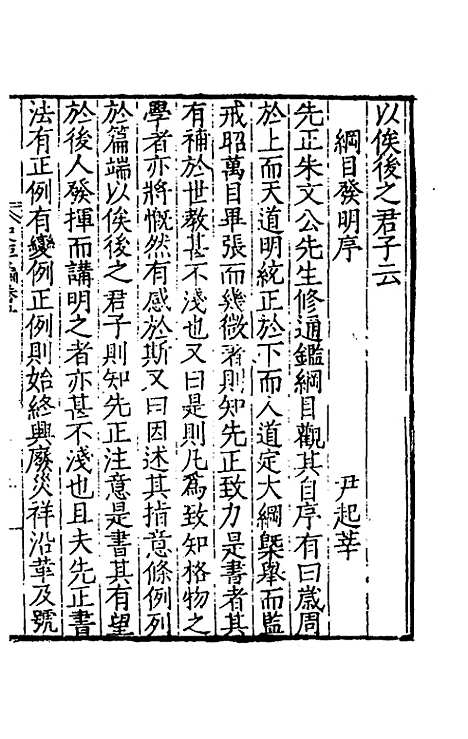 以俟後之君子云
綱目發明序 尹起莘
先正朱文公先生修通鑑綱目觀其自序有曰歲周
於上而天道明統正於下而人道定大綱槩舉而監
戒昭萬目畢張而幾微著則知先正致力是書者其
有補於世教甚不淺也又曰是則凡爲致知格物之
學者亦將慨然有感於斯又曰因述其指意條例列
於篇端以俟後之君子則知先正注意是書其有望
於後人發揮而講明之者亦甚不淺也且夫先正書
法有正例有變例正例則始終興廢災祥沿革及號